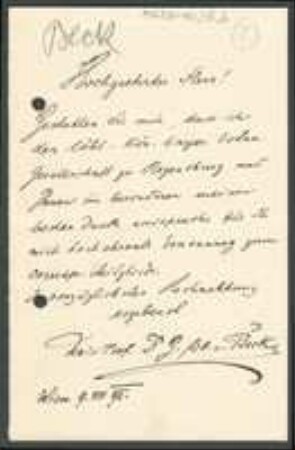 Beck
Hochgeehrter Herr!
Gestatten Sie mir, dass ich
der löbl. kön. bayer. botan.
Gesellschaft zu Regensburg und
Ihnen im besonderen meinen
besten Dank ausspreche für die
mich hochehrende Ernennung zum
Mitgliede.
In vorzüglichster Hochachtung
ergebenst
Dr. G. v. Beck
Wien